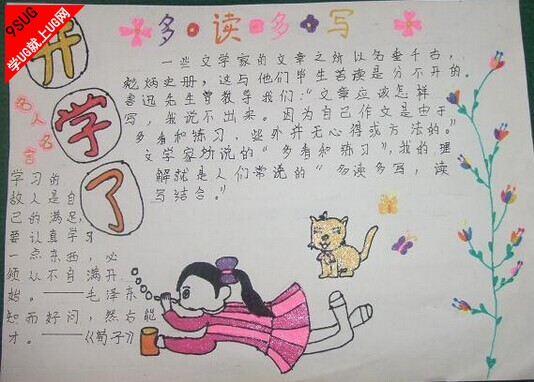 9SUG
学UG就上UG网
开
学
了
多读多写
一些文学家的文章之所以名垂千古，
彪炳史册，这与他们毕生苦读是分不开的。
鲁迅先生曾教导我们："文章应该怎样
写，我说不出来。因为自己作文是由于
多看和练习，些外并无心得或方法的。"
文学家所说的"多看和练习"，我的理
解就是人们常说的"多读多写，读
写结合。"
名人名言
学习的
敌人是自
己的满足，
要认真学习
一点东西，必
须从不自满开
始。——毛泽东
知而好问，然后能
才。——《荀子》